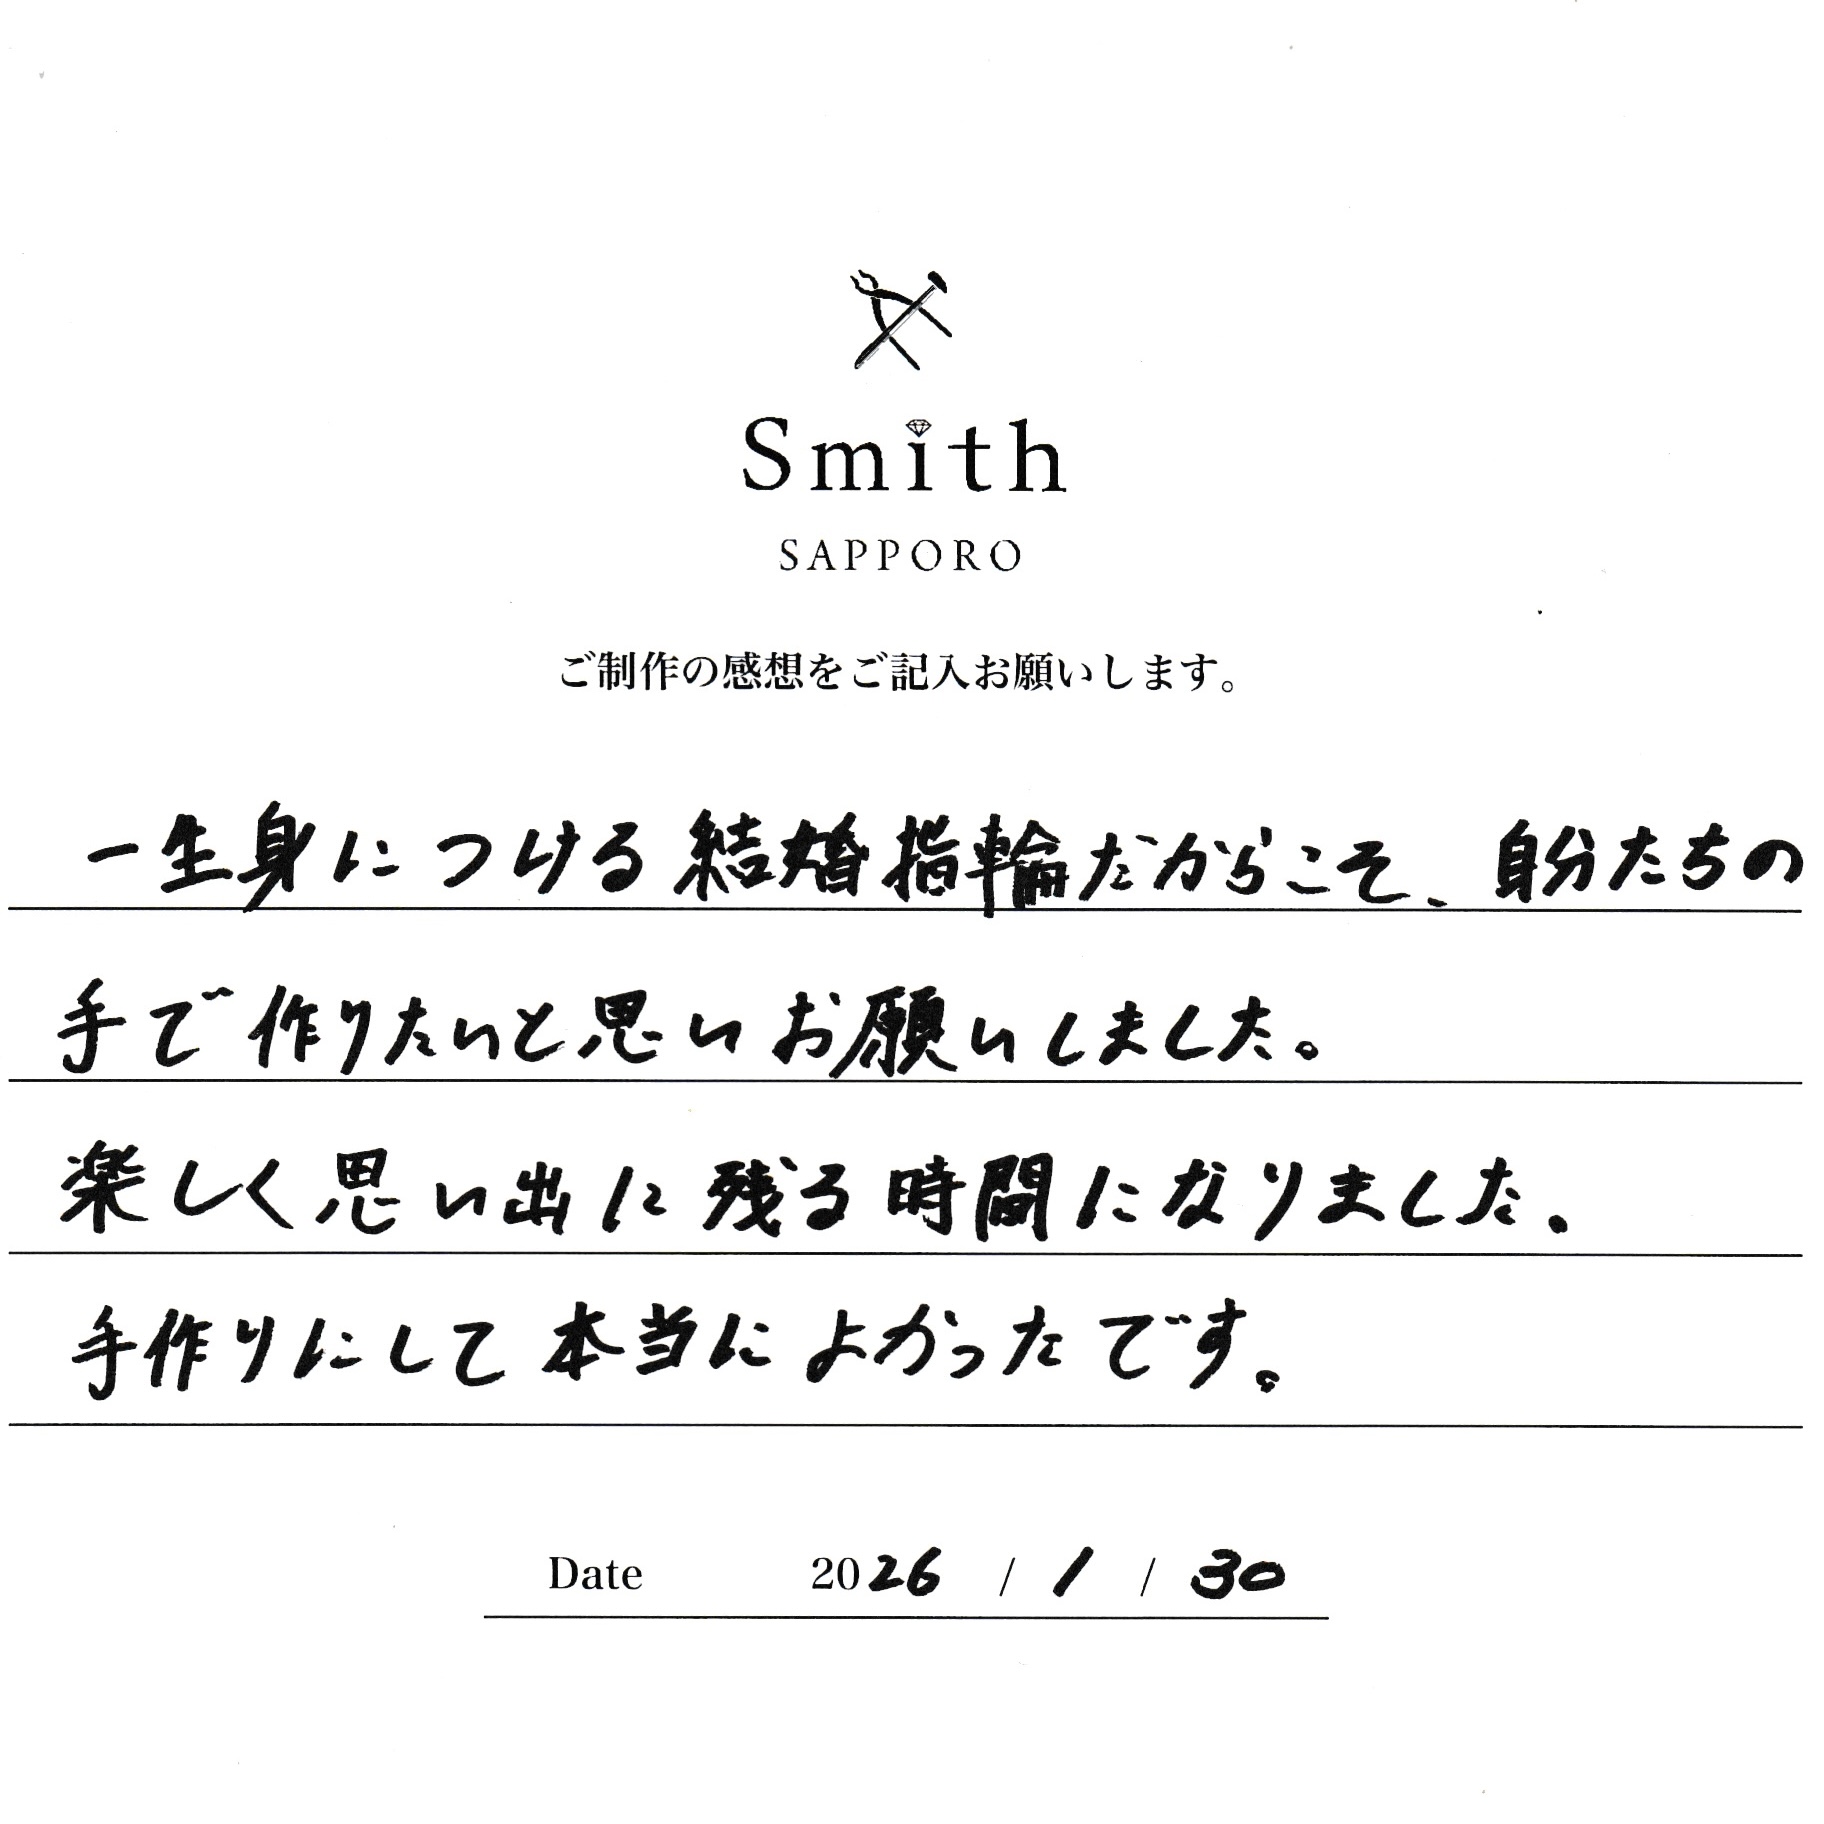 Smith
SAPPORO
ご制作の感想をご記入お願いします。
一生身につける結婚指輪だからこそ、自分たちの
手で作りたいと思いお願いしました。
楽しく思い出に残る時間になりました。
手作りにして本当によかったです。
Date 2026 / 1 / 30